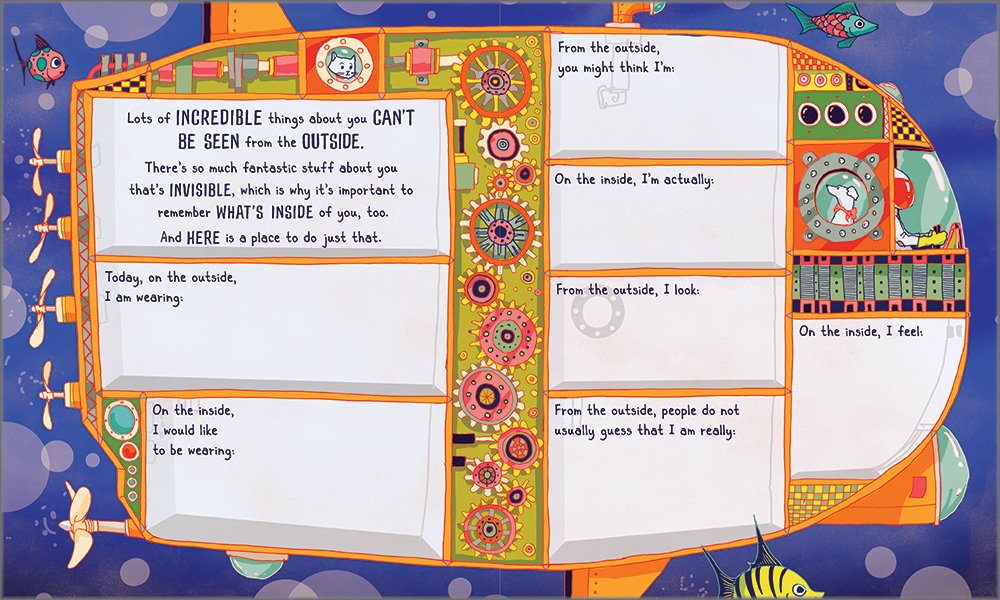 Lots of INCREDIBLE things about you CAN'T
BE SEEN from the OUTSIDE.
There's so much fantastic stuff about you
that's INVISIBLE, which is why it's important to
remember WHAT'S INSIDE of you, too.
And HERE is a place to do just that.
Today, on the outside,
I am wearing:
On the inside,
I would like
to be wearing:
From the outside,
you might think I'm:
On the inside, I'm actually:
From the outside, I look:
From the outside, people do not
usually guess that I am really:
On the inside, I feel: